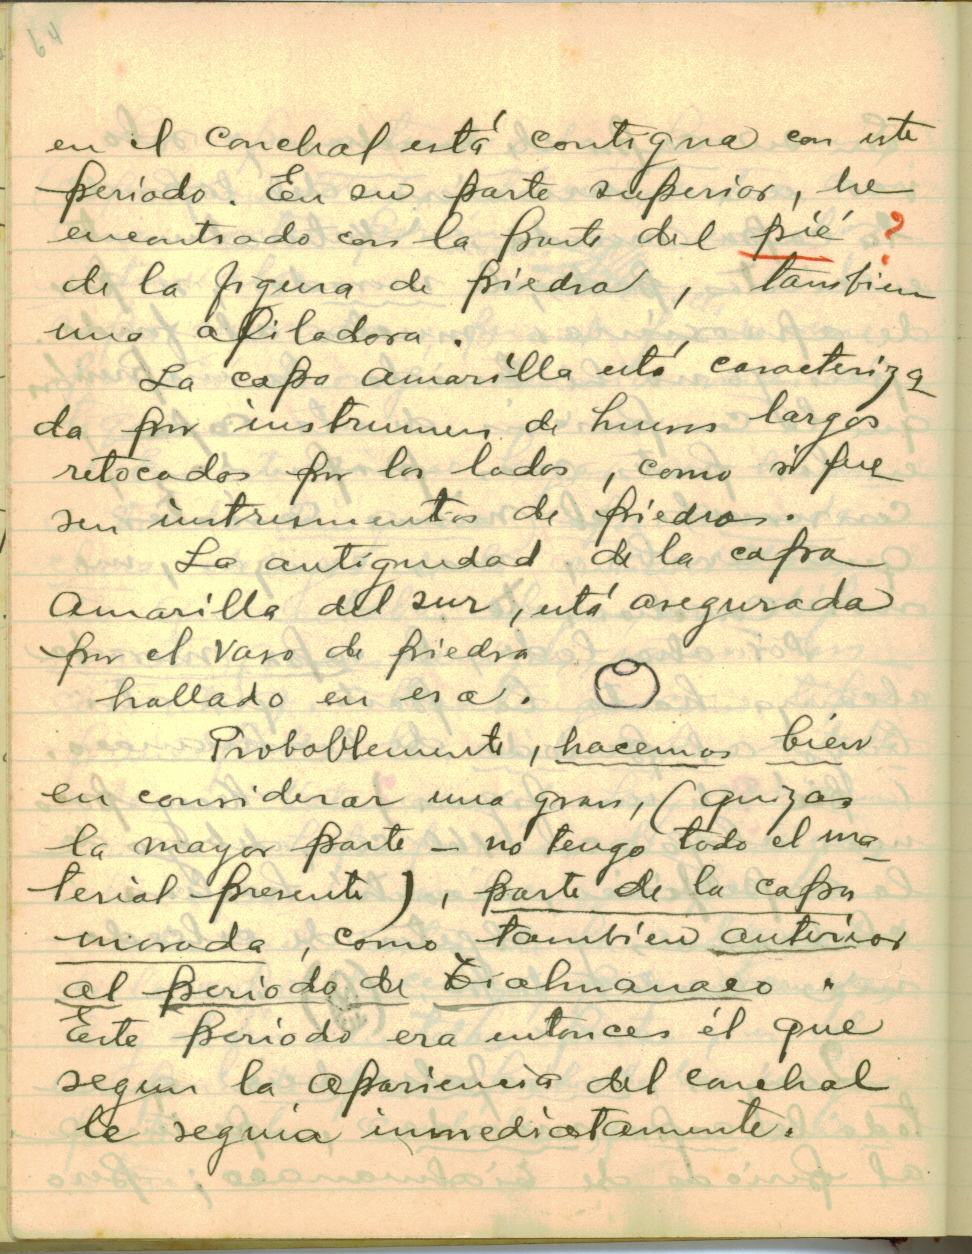 64
en el conchal está contigua con este
periodo. En su parte superior, he
encontrado con la parte del pié ?
de la figura de piedra, tambien
una afiladora.
La capa amarilla está caracteriza
da por instrumen. de huesos largos
retocados por los lados, como si fue
sen instrumentos de piedras.
La antiguedad de la capa
Amarilla del sur, está asegurada
por el vaso de piedra
hallado en esa.
Probablemente, hacemos bien
en considerar una gran, (quizas
la mayor parte — no tengo todo el ma_
terial presente), parte de la capa
morada, como tambien anterior
al periodo de Tiahuanaco.
Este periodo era entonces él que
segun la apariencia del conchal
le seguia inmediatamente.